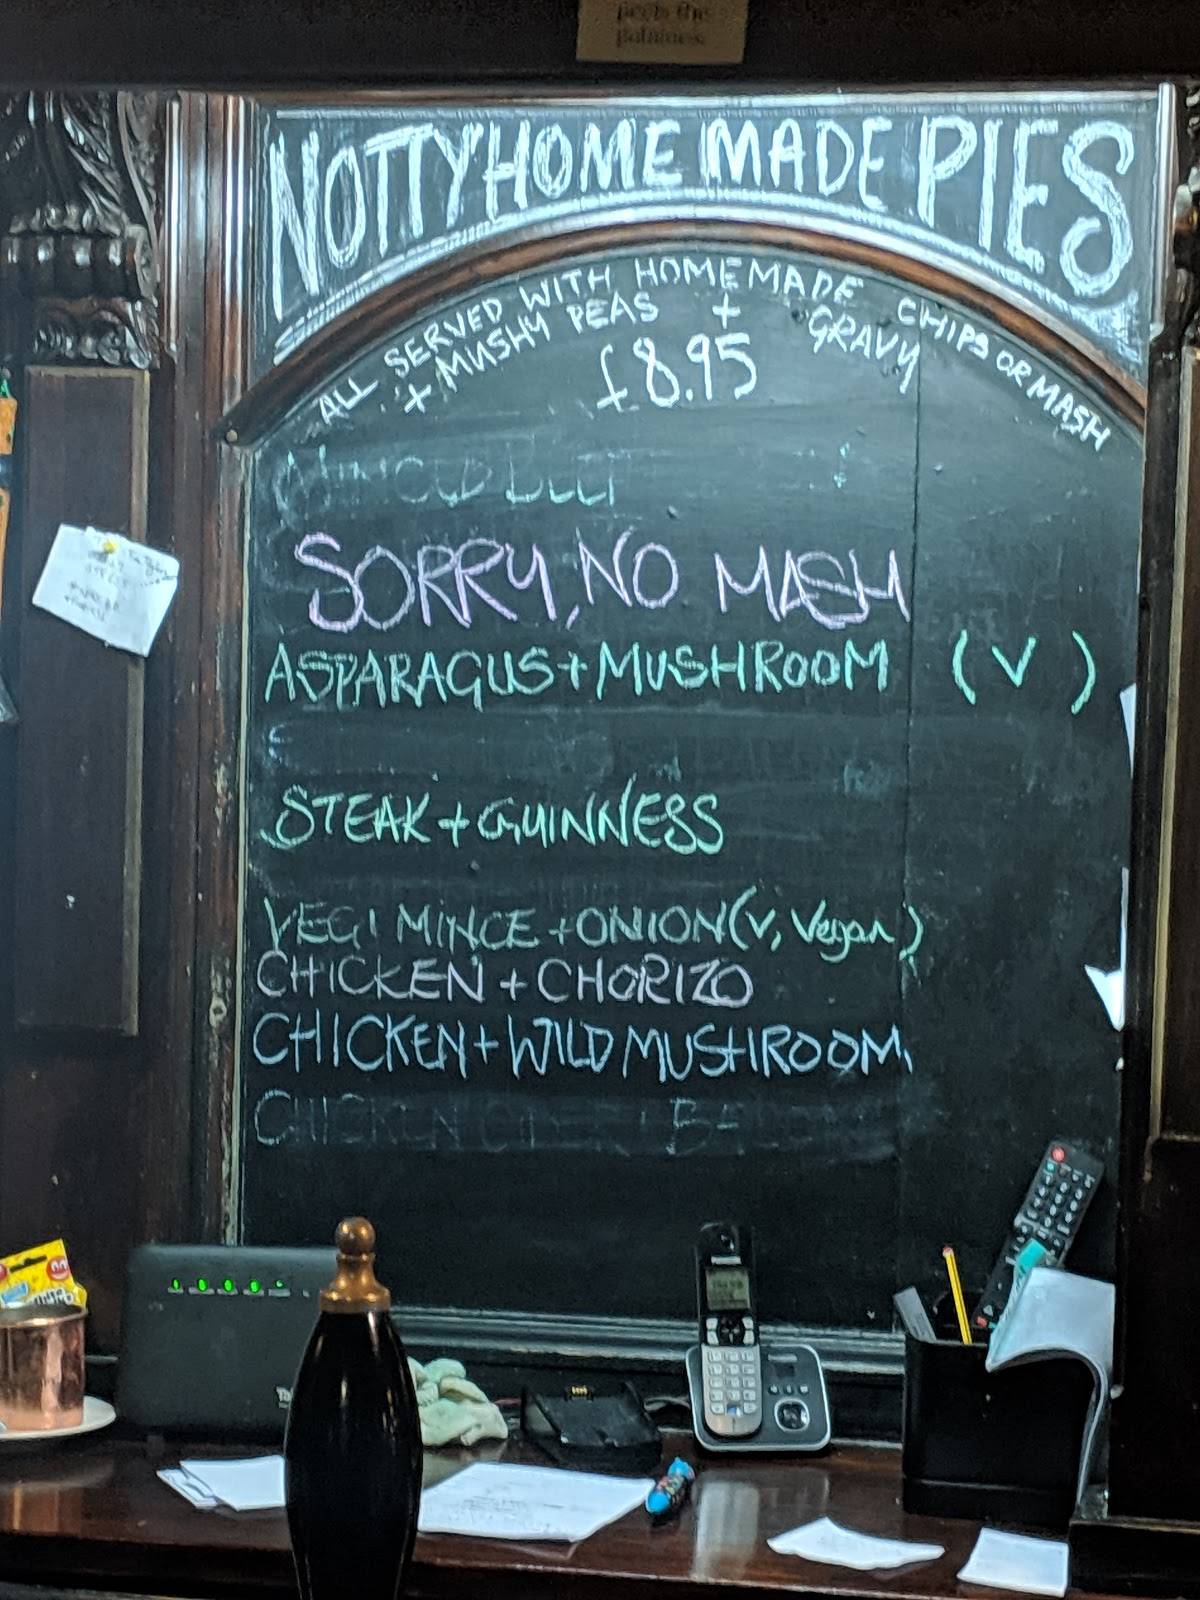 peels the
potatoes
NOTTY HOME MADE PIES
ALL SERVED WITH HOMEMADE CHIPS OR MASH
+ MUSHY PEAS + GRAVY
£8.95
MINCED BEEF
SORRY, NO MASH
ASPARAGUS + MUSHROOM (V)
STEAK + GUINNESS
VEGI MINCE + ONION (V, Vegan)
CHICKEN + CHORIZO
CHICKEN + WILD MUSHROOM.
CHICKEN